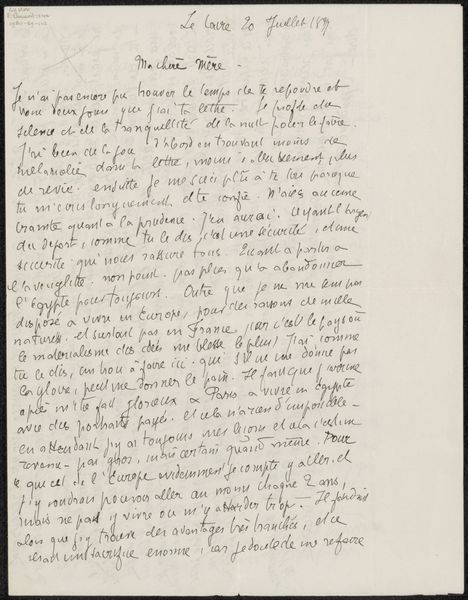 Le Caire 20 Juillet 189
Ma chère Mère -
Je n'ai pas encore pu trouver le temps de te repondre et
voici deux jours que j'ai ta lettre. Je profite du
silence et de la tranquillité de la nuit pour le faire.
J'ai beaucoup d'abord en trouvant moins de
melancolie dans ta lettre, moins
de revie. ensuite je me suis plû à te lire parceque
tu m'ecris longuement et te confie. N'aies aucune
crainte quant à la prudence. J'en aurai. Ayant l'argent
du depart, comme tu le dis, c'est une sécurité, et une
securité qui nous rassure tous. Quant à partir à
l'aveuglette. non point. pas plus qu'à abandonner
l'Egypte pour toujours. Outre que je ne me sens pas
disposé à vivre en Europe, pour des raisons de mille
natures. et surtout pas en France, car c'est le pays où
le materialisme des idées me blesse le plus. J'ai comme
tu le dis, un trou à faire ici. qui s'il ne me donne pas
la gloire, peut me donner le pain. Il faut que j'arrive
après m'être fait glorieux à Paris à vivre en Egypte
avec des portraits payés. et cela n'a rien d'impossible -
en attendant j'y ai toujours mes leçons et cela c'est un
revenu - pas gros, mais certain quand même. Pour
ce qui est de l'Europe evidemment je compte y aller. et
j'y voudrais pouvoir aller au moins chaque 2 ans,
mais ne pas y vivre ou m'y attarder trop. Il faudrait
alors que j'y trouve des avantages très tranchés, et ce
serait un sacrifice enorme, car je doute de me refaire